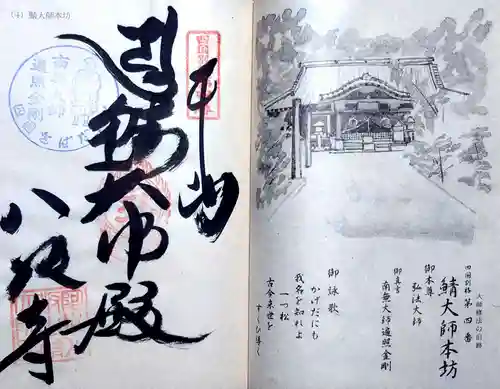 (4) 鯖大師本坊
奉納
鯖大師殿
八坂寺
南無大師
遍照金剛
さばだ
四国別格
大師修法の旧跡
四国別格 第四番
鯖大師本坊
御本尊
弘法大師
御真言
南無大師遍照金剛
御詠歌
かげだにも
我名を知れよ
一つ松
古今来世を
すくひ導く